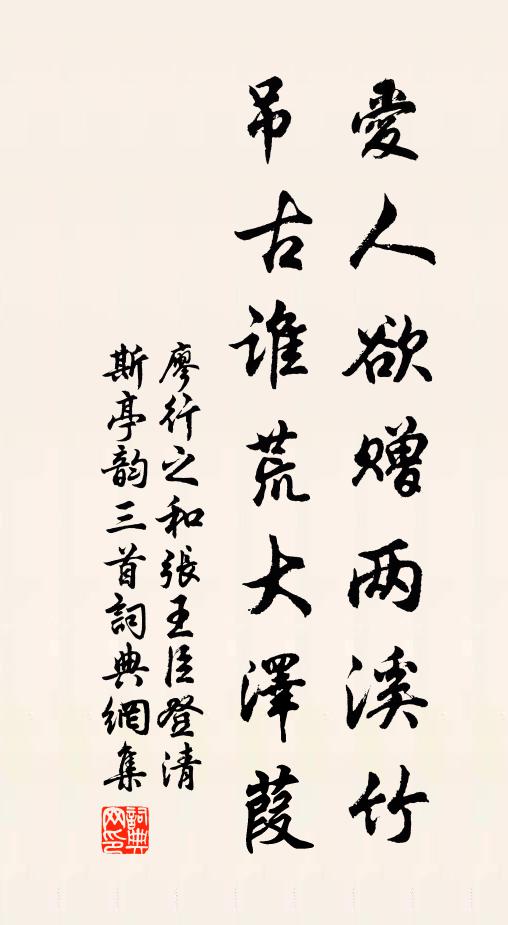 愛人欲贈两溪竹
吊古誰荒大澤葭
廖行之和張王臣登清
斯亭韵三首詞典網集
詞典网印